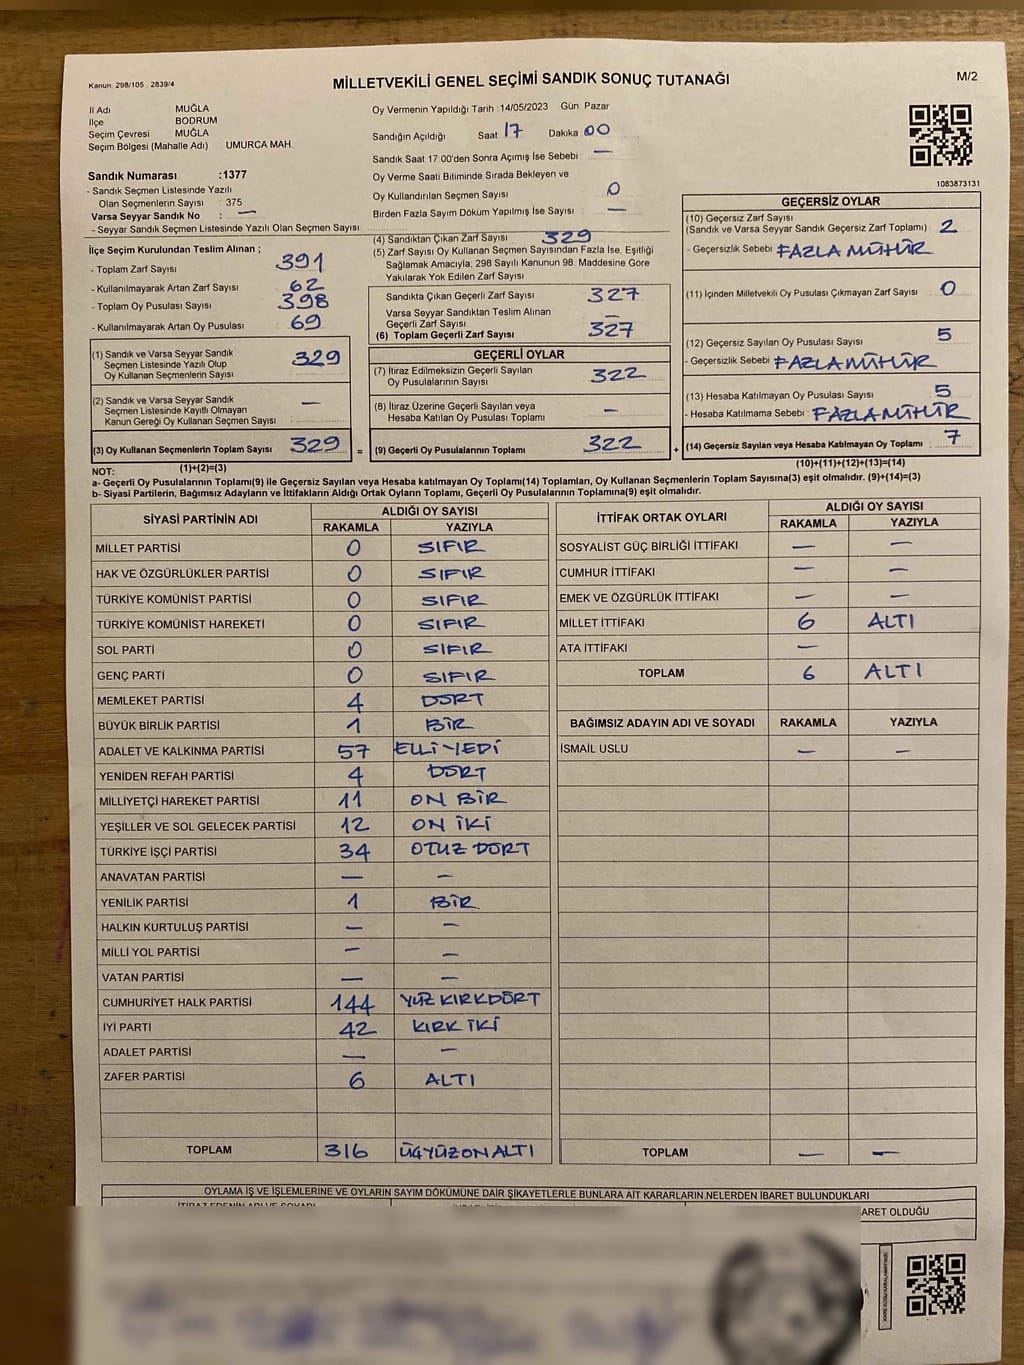 Kanun: 298/105 2839/4
MİLLETVEKİLİ GENEL SEÇİMİ SANDIK SONUÇ TUTANAĞI
M/2
İl Adı MUĞLA
İlçe BODRUM
Seçim Çevresi MUĞLA
Seçim Bölgesi (Mahalle Adı) UMURCA MAH.
Sandık Numarası :1377
- Sandık Seçmen Listesinde Yazılı
Olan Seçmenlerin Sayısı : 375
Varsa Seyyar Sandık No : —
- Seyyar Sandık Seçmen Listesinde Yazılı Olan Seçmen Sayısı
İlçe Seçim Kurulundan Teslim Alınan ;
- Toplam Zarf Sayısı 391
- Kullanılmayarak Artan Zarf Sayısı 62
- Toplam Oy Pusulası Sayısı 398
- Kullanılmayarak Artan Oy Pusulası 69
(1) Sandık ve Varsa Seyyar Sandık
Seçmen Listesinde Yazılı Olup
Oy Kullanan Seçmenlerin Sayısı 329
(2) Sandık ve Varsa Seyyar Sandık
Seçmen Listesinde Kayıtlı Olmayan
Kanun Gereği Oy Kullanan Seçmen Sayısı : —
(3) Oy Kullanan Seçmenlerin Toplam Sayısı 329 =
Oy Vermenin Yapıldığı Tarih :14/05/2023 Gün Pazar
Sandığın Açıldığı Saat 17 Dakika 00
Sandık Saat 17 00'den Sonra Açımış İse Sebebi : —
Oy Verme Saati Bitiminde Sırada Bekleyen ve
Oy Kullandırılan Seçmen Sayısı 0
Birden Fazla Sayım Döküm Yapılmış İse Sayısı : —
(4) Sandıktan Çıkan Zarf Sayısı 329
(5) Zarf Sayısı Oy Kullanan Seçmen Sayısından Fazla İse, Eşitliği
Sağlamak Amacıyla, 298 Sayılı Kanunun 98. Maddesine Göre
Yakılarak Yok Edilen Zarf Sayısı
Sandıkta Çıkan Geçerli Zarf Sayısı 327
Varsa Seyyar Sandıktan Teslim Alınan
Geçerli Zarf Sayısı —
(6) Toplam Geçerli Zarf Sayısı 327
GEÇERLİ OYLAR
(7) İtiraz Edilmeksizin Geçerli Sayılan
Oy Pusulalarının Sayısı 322
(8) İtiraz Üzerine Geçerli Sayılan veya
Hesaba Katılan Oy Pusulası Toplamı —
(9) Geçerli Oy Pusulalarının Toplamı 322 +
1083873131
GEÇERSİZ OYLAR
(10) Geçersiz Zarf Sayısı
(Sandık ve Varsa Seyyar Sandık Geçersiz Zarf Toplamı) 2
- Geçersizlik Sebebi : FAZLA MÜHÜR
(11) İçinden Milletvekili Oy Pusulası Çıkmayan Zarf Sayısı 0
(12) Geçersiz Sayılan Oy Pusulası Sayısı 5
- Geçersizlik Sebebi FAZLA MÜHÜR
(13) Hesaba Katılmayan Oy Pusulası Sayısı 5
- Hesaba Katılmama Sebebi : FAZLA MÜHÜR
(14) Geçersiz Sayılan veya Hesaba Katılmayan Oy Toplamı 7
NOT: (1)+(2)=(3) (10)+(11)+(12)+(13)=(14)
a- Geçerli Oy Pusulalarının Toplamı(9) ile Geçersiz Sayılan veya Hesaba katılmayan Oy Toplamı(14) Toplamları, Oy Kullanan Seçmenlerin Toplam Sayısına(3) eşit olmalıdır. (9)+(14)=(3)
b- Siyasi Partilerin, Bağımsız Adayların ve İttifakların Aldığı Ortak Oyların Toplamı, Geçerli Oy Pusulalarının Toplamına(9) eşit olmalıdır.
SİYASİ PARTİNİN ADI ALDIĞI OY SAYISI
RAKAMLA YAZIYLA
MİLLET PARTİSİ 0 SIFIR
HAK VE ÖZGÜRLÜKLER PARTİSİ 0 SIFIR
TÜRKİYE KOMÜNİST PARTİSİ 0 SIFIR
TÜRKİYE KOMÜNİST HAREKETİ 0 SIFIR
SOL PARTİ 0 SIFIR
GENÇ PARTİ 0 SIFIR
MEMLEKET PARTİSİ 4 DÖRT
BÜYÜK BİRLİK PARTİSİ 1 BİR
ADALET VE KALKINMA PARTİSİ 57 ELLİ YEDİ
YENİDEN REFAH PARTİSİ 4 DÖRT
MİLLİYETÇİ HAREKET PARTİSİ 11 ON BİR
YEŞİLLER VE SOL GELECEK PARTİSİ 12 ON İKİ
TÜRKİYE İŞÇİ PARTİSİ 34 OTUZ DÖRT
ANAVATAN PARTİSİ — —
YENİLİK PARTİSİ 1 BİR
HALKIN KURTULUŞ PARTİSİ — —
MİLLİ YOL PARTİSİ — —
VATAN PARTİSİ — —
CUMHURİYET HALK PARTİSİ 144 YÜZ KIRKDÖRT
İYİ PARTİ 42 KIRK İKİ
ADALET PARTİSİ — —
ZAFER PARTİSİ 6 ALTI
TOPLAM 316 ÜÇYÜZONALTI
İTTİFAK ORTAK OYLARI ALDIĞI OY SAYISI
RAKAMLA YAZIYLA
SOSYALİST GÜÇ BİRLİĞİ İTTİFAKI — —
CUMHUR İTTİFAKI — —
EMEK VE ÖZGÜRLÜK İTTİFAKI — —
MİLLET İTTİFAKI 6 ALTI
ATA İTTİFAKI —
TOPLAM 6 ALTI
BAĞIMSIZ ADAYIN ADI VE SOYADI RAKAMLA YAZIYLA
İSMAİL USLU — —
TOPLAM — —
OYLAMA İŞ VE İŞLEMLERİNE VE OYLARIN SAYIM DÖKÜMÜNE DAİR ŞİKAYETLERLE BUNLARA AİT KARARLARIN NELERDEN İBARET BULUNDUKLARI
İTİRAZ EDENİN ADI VE SOYADI
ARET OLDUĞU